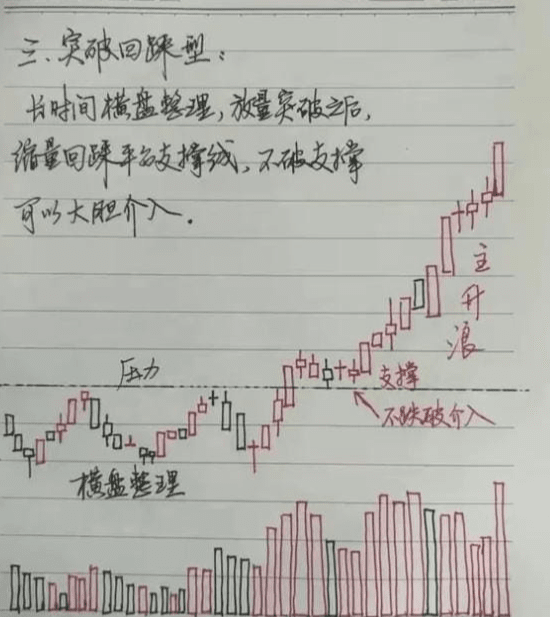 三、突破回踩型：
长时间横盘整理，放量突破之后，
缩量回踩平台支撑线，不破支撑
可以大胆介入。
主升浪
压力
支撑
不跌破介入
横盘整理